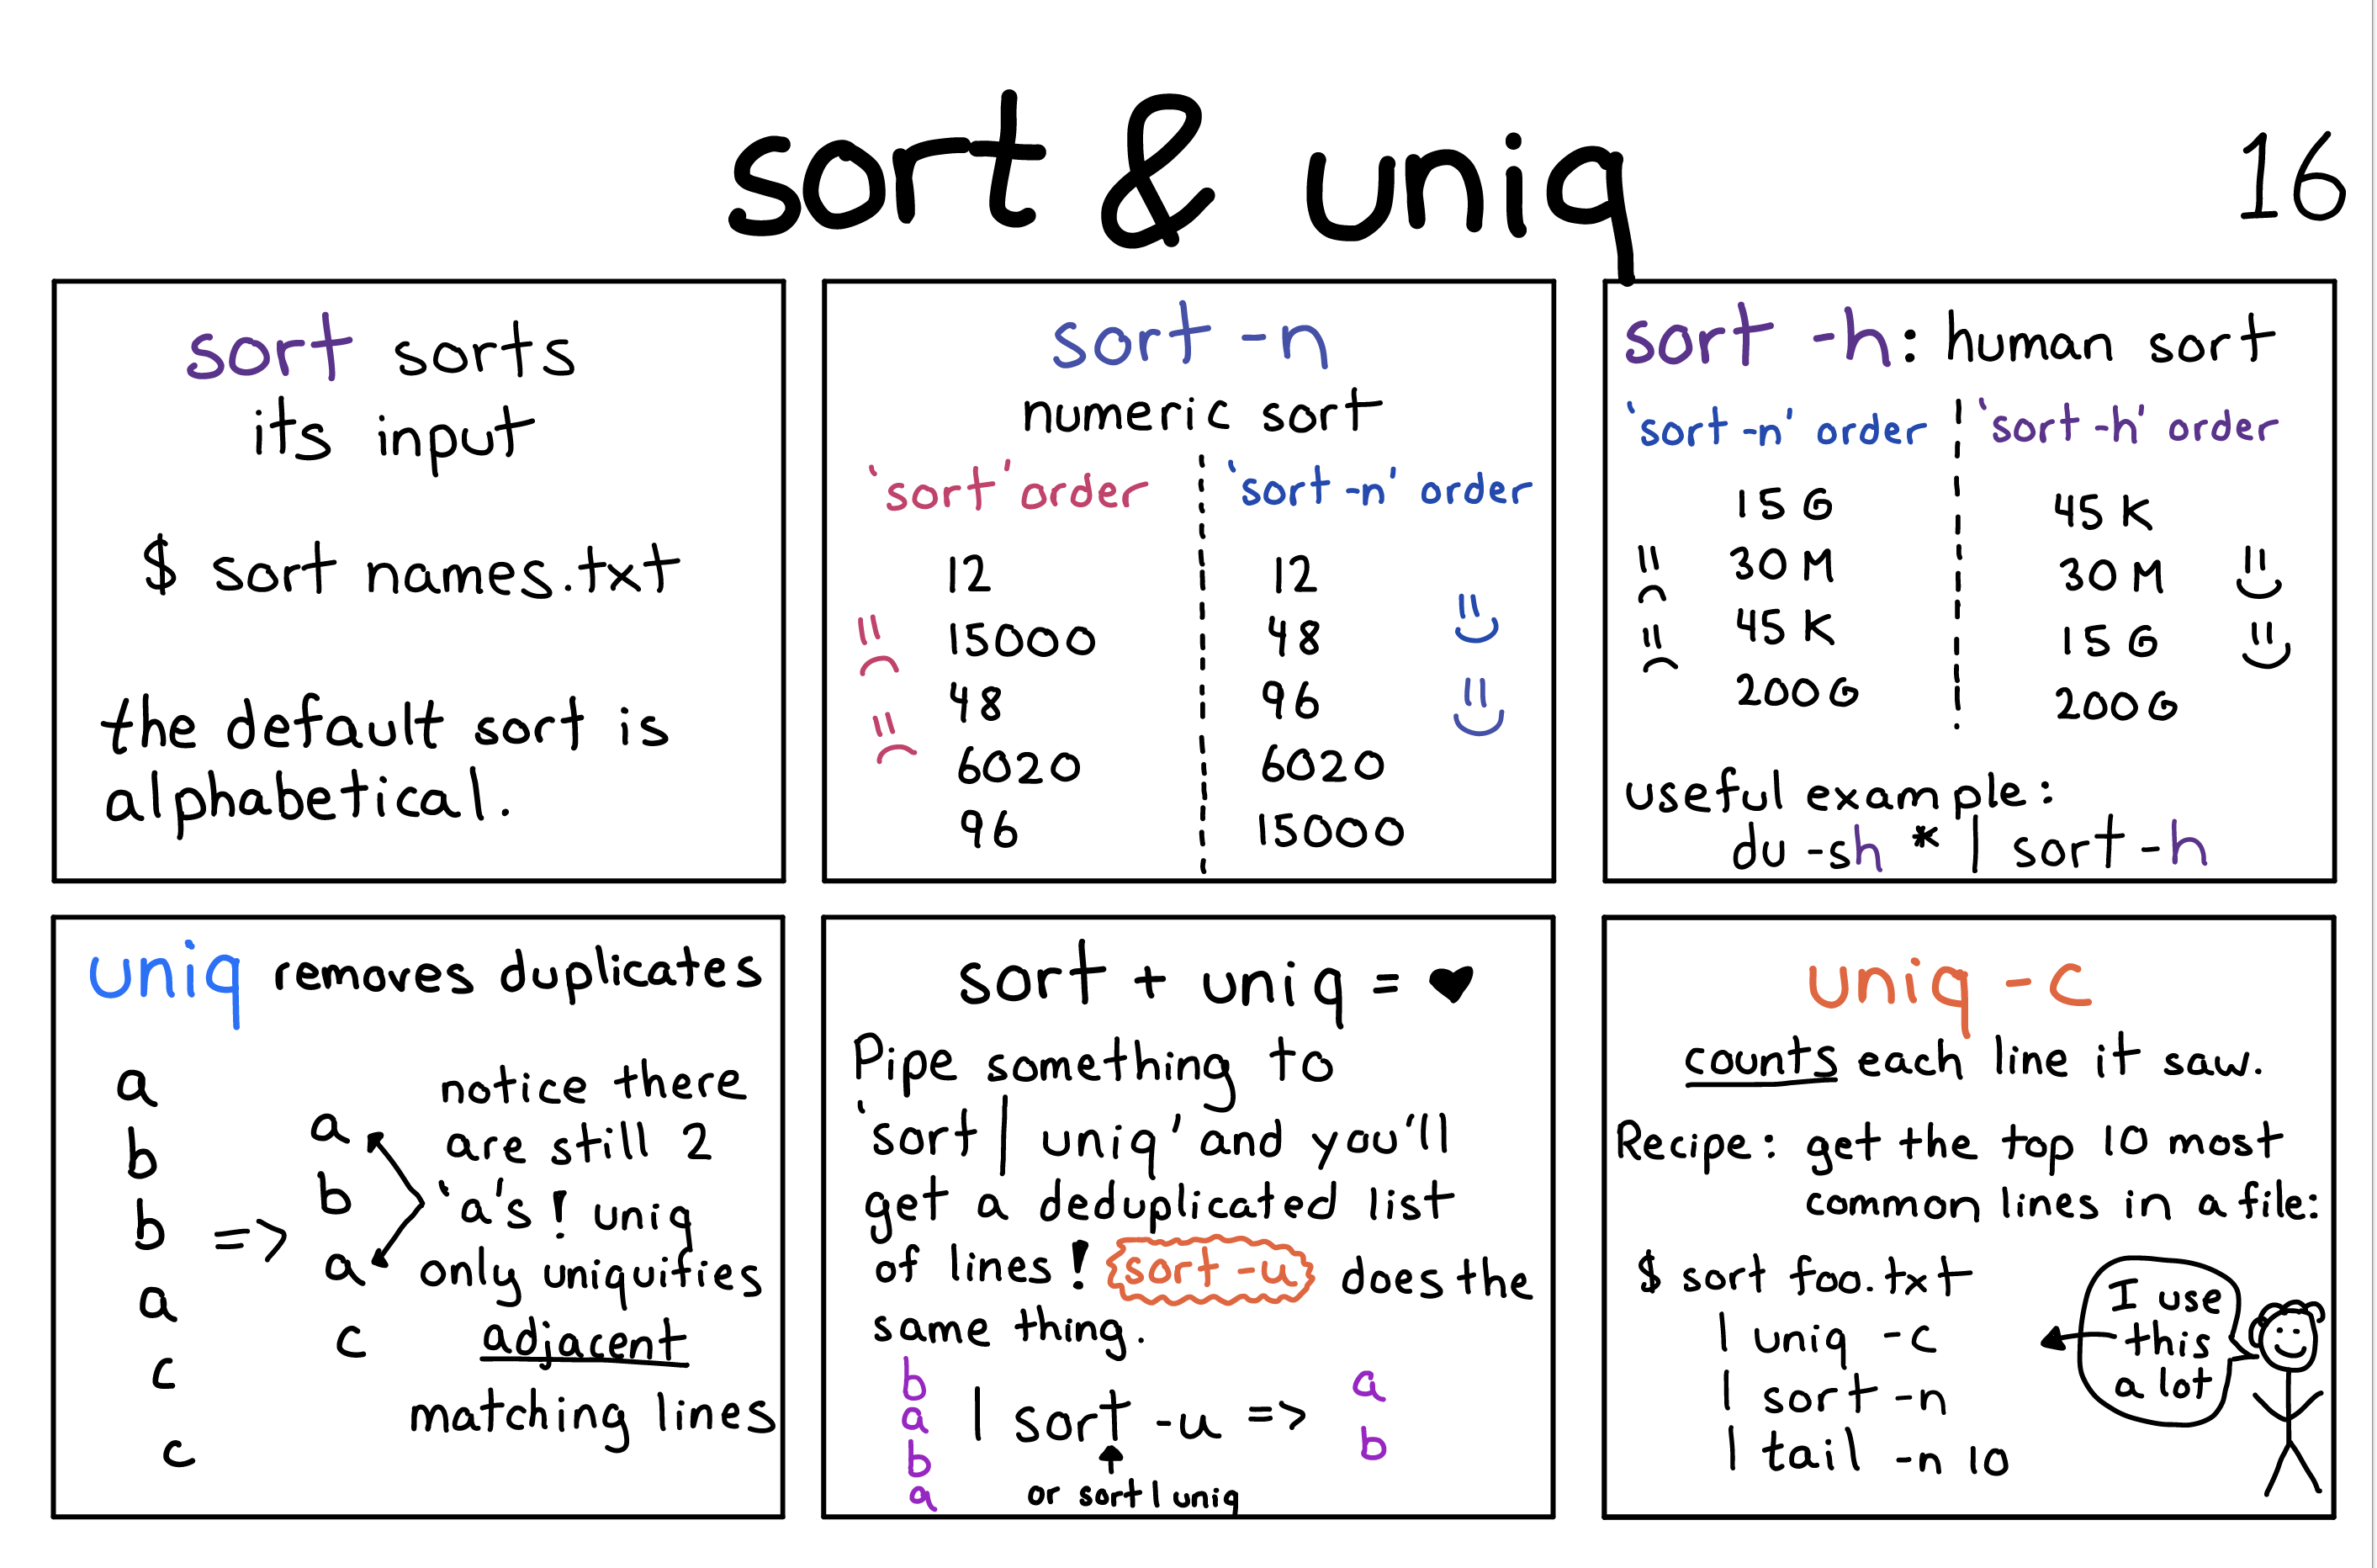 sort & uniq
16
sort sorts
its input
$ sort names.txt
the default sort is
alphabetical.
sort -n
numeric sort
'sort' order
12
15000
48
6020
96
'sort -n' order
12
48
96
6020
15000
sort -h: human sort
'sort -n' order
15G
30M
45K
200G
'sort -h' order
45K
30M
15G
200G
useful example:
du -sh * | sort -h
uniq removes duplicates
a
b
b
a
c
c
=>
a
b
a
c
notice there
are still 2
'a's! uniq
only uniquifies
adjacent
matching lines
sort + uniq = ♥
Pipe something to
'sort | uniq' and you'll
get a deduplicated list
of lines! sort -u does the
same thing.
b
a
b
a
| sort -u =>
or sort | uniq
a
b
uniq -c
counts each line it saw.
Recipe: get the top 10 most
common lines in a file:
$ sort foo.txt
| uniq -c
| sort -n
| tail -n 10
I use
this
a lot